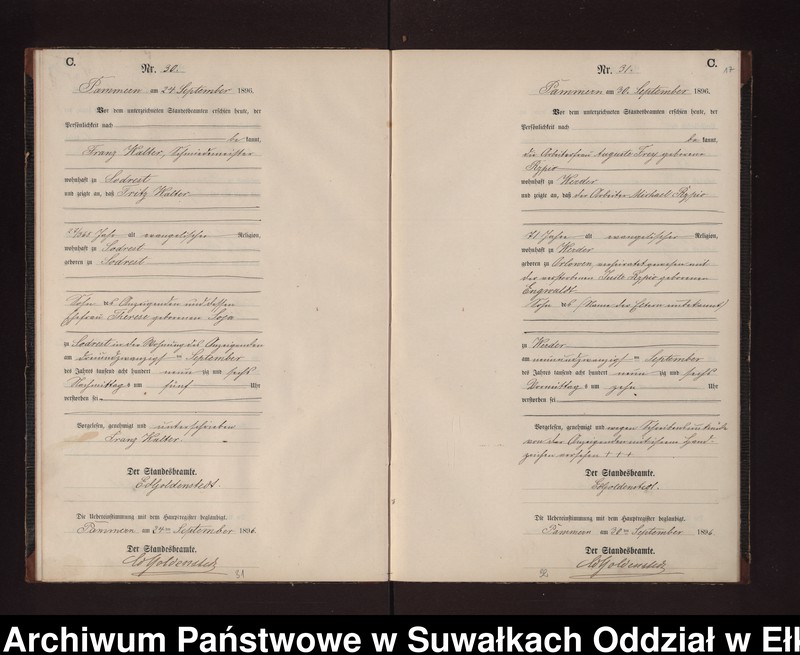 C.
Nr. 30.
Pammern am 24 September 1896.
Vor dem unterzeichneten Standesbeamten erschien heute, der
Persönlichkeit nach
be kannt,
Franz Kalter, Schmiedemeister
wohnhaft zu Sodrest
und zeigte an, daß Fritz Kalter
Jahr alt evangelischer Religion,
wohnhaft zu Sodrest
geboren zu Sodrest
Sohn des Anzeigenden und dessen
Ehefrau Therese geborenen Soja
zu Sodrest in der Wohnung des Anzeigenden
am dreiundzwanzigsten September
des Jahres tausend acht hundert neun zig und sechs
Nachmittags um fünf Uhr
verstorben sei
Vorgelesen, genehmigt und unterschrieben
Franz Kalter.
Der Standesbeamte.
Goldenstedt.
Die Uebereinstimmung mit dem Hauptregister beglaubigt.
Pammern am 24ten September 1896.
Der Standesbeamte.
Goldenstedt
31
C.
17
Nr. 31.
Pammern am 30. September 1896.
Vor dem unterzeichneten Standesbeamten erschien heute, der
Persönlichkeit nach
be kannt,
die Arbeiterfrau Auguste Frey geborene
Rzpio
wohnhaft zu Werder
und zeigte an, daß der Arbeiter Michael Rzpio
71 Jahre alt evangelischer Religion,
wohnhaft zu Werder
geboren zu Orlowen, verheiratet gewesen mit
der verstorbenen Rzpio geborenen
Engwaldt
Sohn des (Name der Eltern unbekannt)
zu Werder
am neunundzwanzigsten September
des Jahres tausend acht hundert neun zig und sechs
Vormittags um zehn Uhr
verstorben sei
Vorgelesen, genehmigt und wegen Schreibensunkunde
von der Anzeigenden mit ihrem Hand-
zeichen versehen + + +
Der Standesbeamte.
Goldenstedt.
Die Uebereinstimmung mit dem Hauptregister beglaubigt.
Pammern am 30ten September 1896
Der Standesbeamte.
Goldenstedt
Archiwum Państwowe w Suwałkach Oddział w Ełk